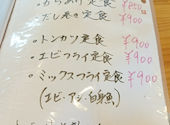 ・からあげ定食 ¥850
だし巻の定食 ¥900
・トンカツ定食 ¥900
・エビフライ定食 ¥900
・ミックスフライ定食 ¥900
(エビ・アジ・白身魚)